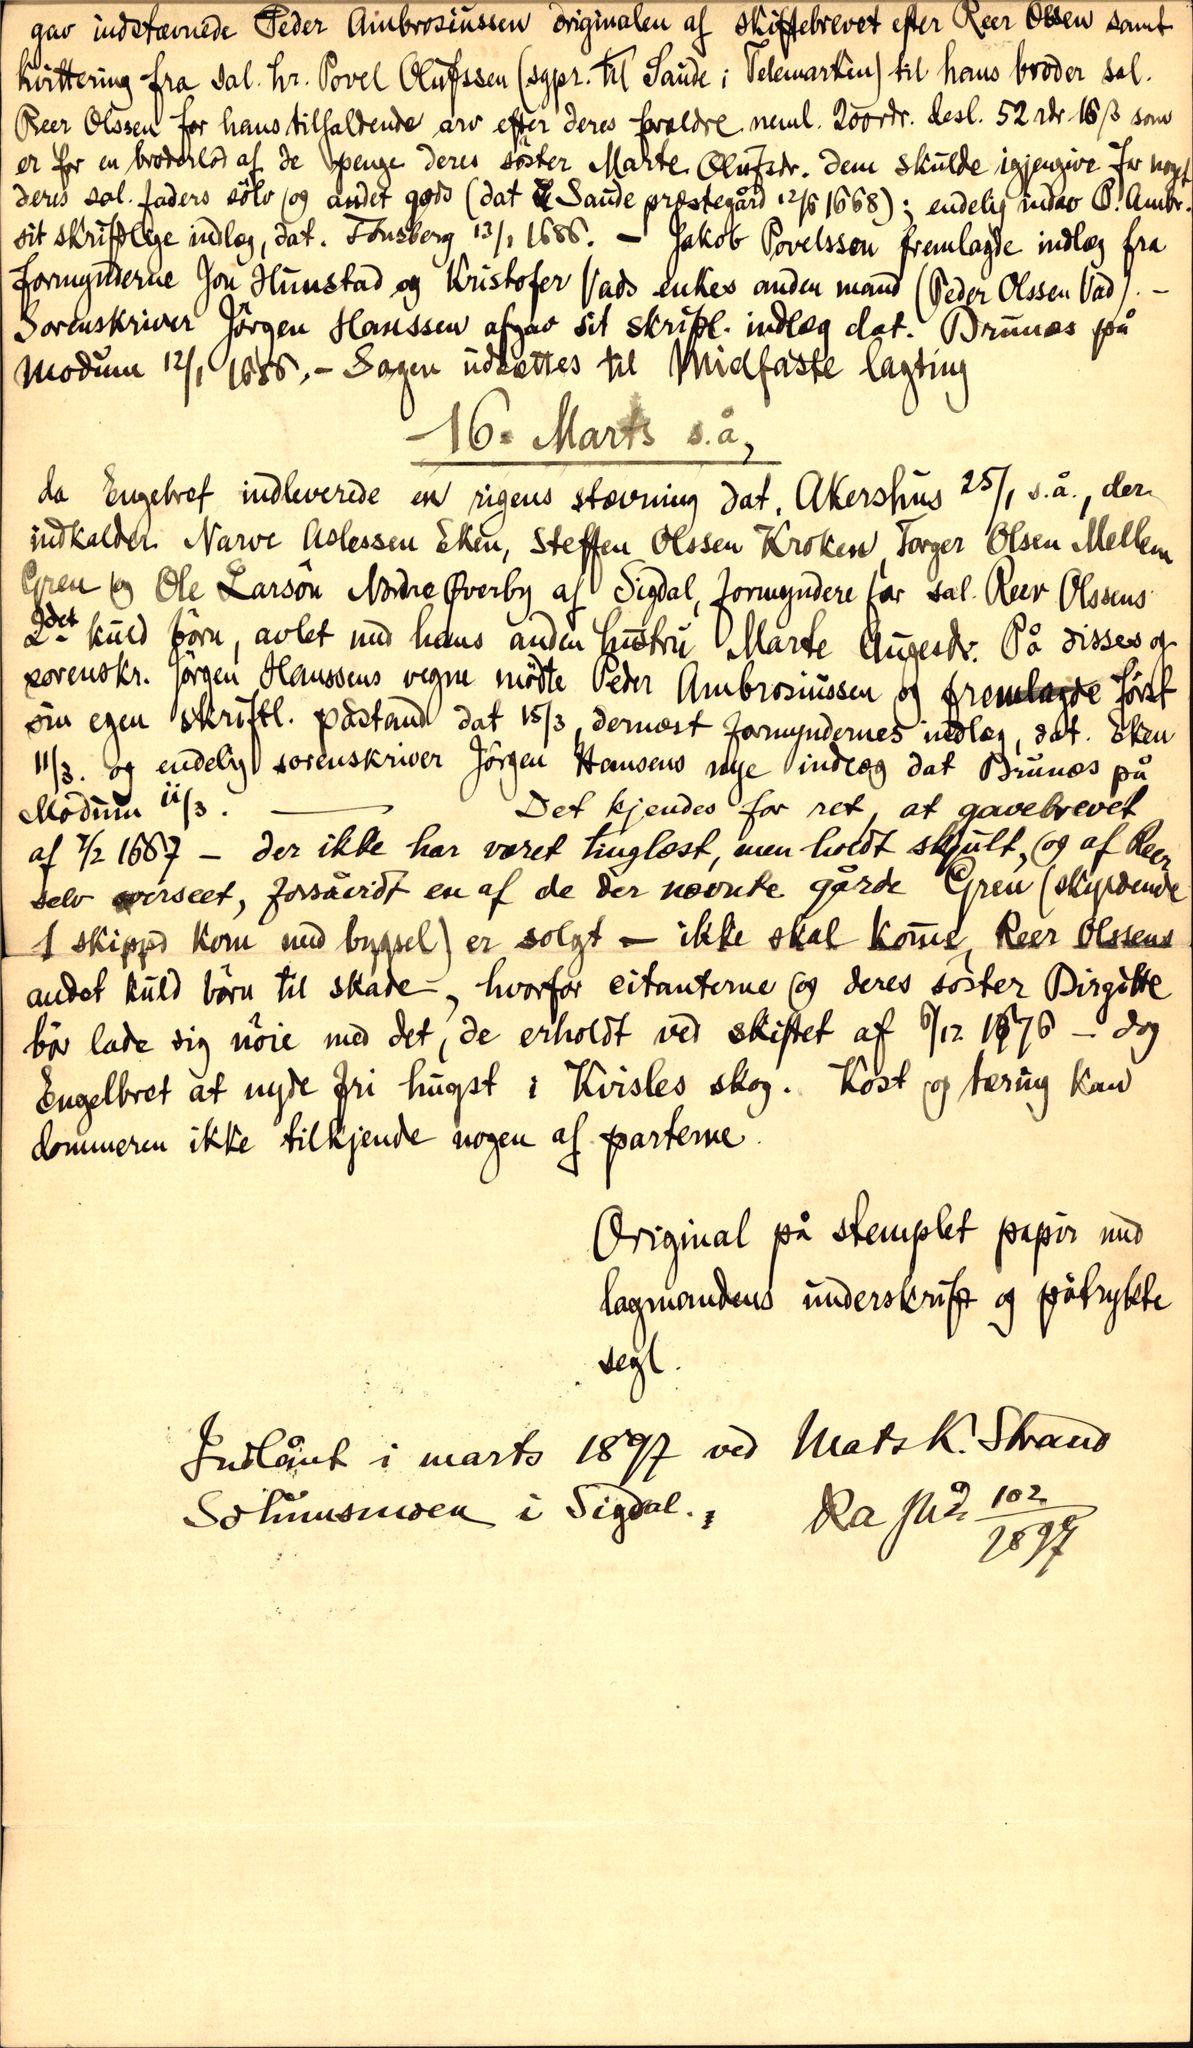 gav indstævnede Peder Ambrosiussen originalen af skiftebrevet efter Reer Olssen samt
kvittering fra sal. hr. Povel Olufssen (sgpr. til Saude i Telemarken) til hans broder sal.
Reer Olssen for hans tilfaldende arv efter deres forældre neml. 200rdr. desl. 52 rdr 16 ß som
er for en broderlod af de penge deres söster Marte Olufsdr. dem skulde igjengive for noget
deres sal. faders sölv og andet gods (dat Saude præstegård 12/6 1668); endelig indgav P. Ambr.
sit skriftlige indlæg, dat. Tönsberg 13/1 1686. - Jakob Povelsson fremlagde indlæg fra
formynderne Jon Hunstad og Kristofer Vads enkes anden mand (Peder Olssen Vad). -
Sorenskriver Jörgen Hanssen afgav sit skriftl. indlæg dat. Brunæs på
Modum 12/1 1686. - Sagen udsættes til Midfaste lagting
16. Marts s.å,
da Engebret indleverede en rigens stævning dat. Akershus 25/1 s.å., der
indkalder Narve Aslessen Eken, Steffen Olssen Kroken, Torger Olsen Mellem
Gren og Ole Larsön Nordre Øverby af Sigdal, formyndere for sal. Reer Olssens
2det kuld börn, avlet med hans anden hustru Marte Augesdr. På disses og
sorenskr. Jörgen Hanssens vegne mödte Peder Ambrosiussen og fremlagde först
sin egen skriftl. påstand dat 15/3, dernæst formyndernes indlæg, dat. Eken
11/3. og endelig sorenskriver Jörgen Hansens nye indlæg dat Brunæs på
Modum 11/3. — Det kjendes for ret, at gavebrevet
af 7/2 1667 - der ikke har været tinglæst, men holdt skjult, og af Reer
selv overseet, forsåvidt en af de der nævnte gårde Gren (skyldende
1 skippd korn med bygsel) er solgt - ikke skal komme Reer Olssens
andet kuld börn til skade -, hvorfor citanterne og deres söster Birgitte
bör lade sig nöie med det, de erholdt ved skiftet af 6/12 1676 - dog
Engelbret at nyde fri hugst i Kvisles skog. Kost og tæring kan
dommeren ikke tilkjende nogen af parterne.
Original på stemplet papir med
lagmandens underskrift og påtrykte
segl.
Indlånt i marts 1897 ved Mats K. Strand
Solumsmoen i Sigdal. Ra 102/1897